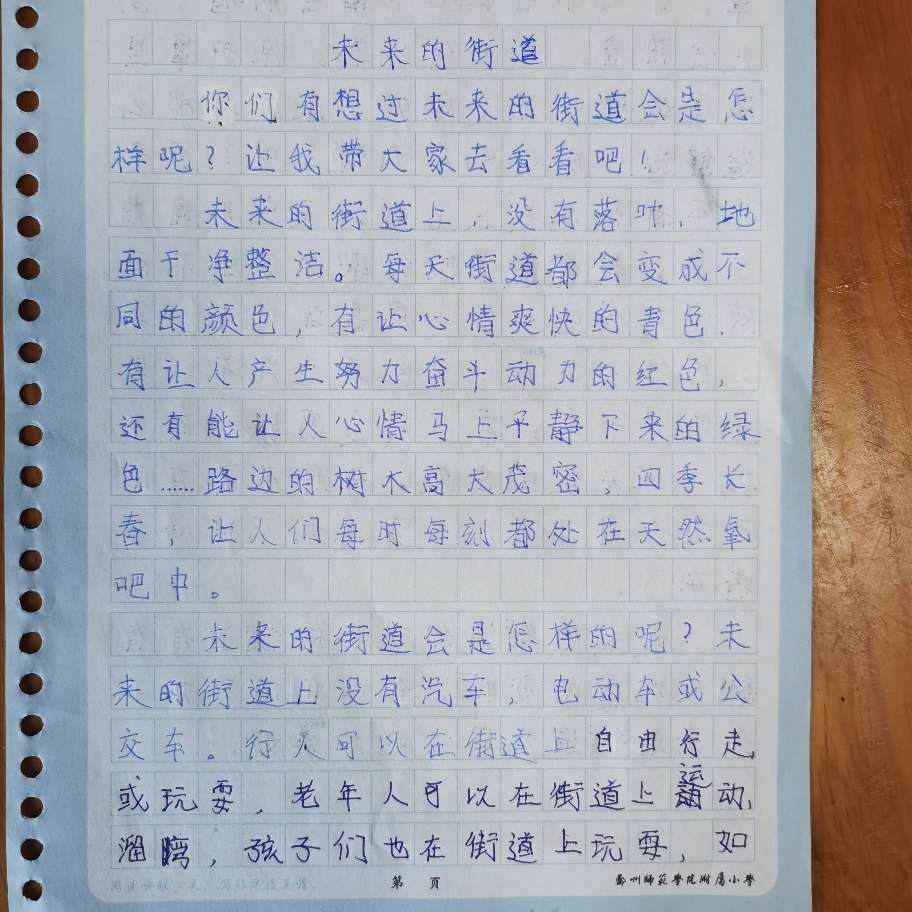 未来的街道
你们有想过未来的街道会是怎
样呢？让我带大家去看看吧！
未来的街道上，没有落叶，地
面干净整洁。每天街道都会变成不
同的颜色，有让心情爽快的青色，
有让人产生努力奋斗动力的红色，
还有能让人心情马上平静下来的绿
色……路边的树木高大茂密，四季长
春，让人们每时每刻都处在天然氧
吧中。
未来的街道会是怎样的呢？未
来的街道上没有汽车，电动车或公
交车。行人可以在街道上自由行走，
或玩耍，老年人可以在街道上运动、
溜弯，孩子们也在街道上玩耍，如
第 页
郑州师范学院附属小学